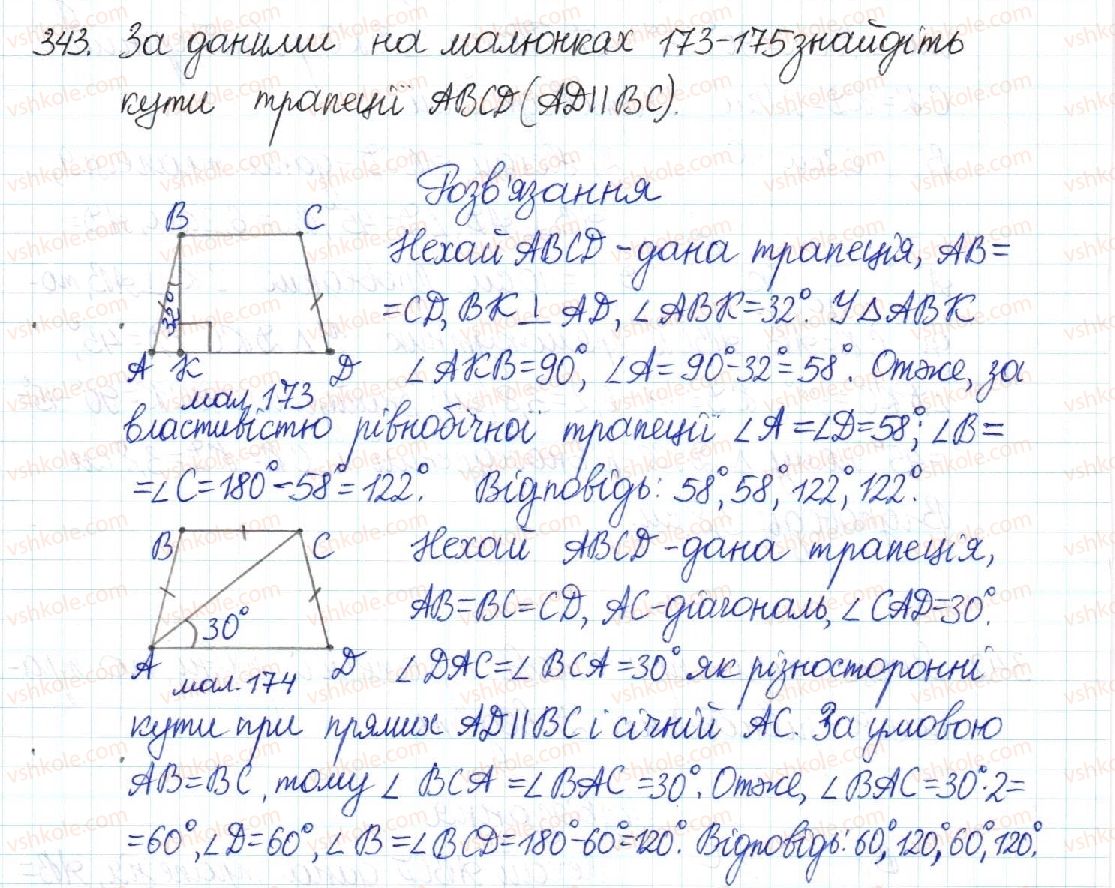 343. За даними на малюнках 173-175 знайдіть
кути трапеції ABCD (AD||BC).
Розв'язання
B C
Нехай ABCD - дана трапеція, AB=
32°
=CD, BK⊥AD, ∠ABK=32°. У △ABK
A K D
∠AKB=90°, ∠A=90°-32°=58°. Отже, за
мал. 173
властивістю рівнобічної трапеції ∠A=∠D=58°; ∠B=
=∠C=180°-58°=122°. Відповідь: 58°, 58°, 122°, 122°.
B C
Нехай ABCD - дана трапеція,
AB=BC=CD, AC-діагональ, ∠CAD=30°.
30°
A D
∠DAC=∠BCA=30° як різносторонні
мал. 174
кути при прямих AD||BC і січній AC. За умовою
AB=BC, тому ∠BCA=∠BAC=30°. Отже, ∠BAC=30°·2=
=60°, ∠D=60°, ∠B=∠BCD=180°-60°=120°. Відповідь: 60°, 120°, 60°, 120°.